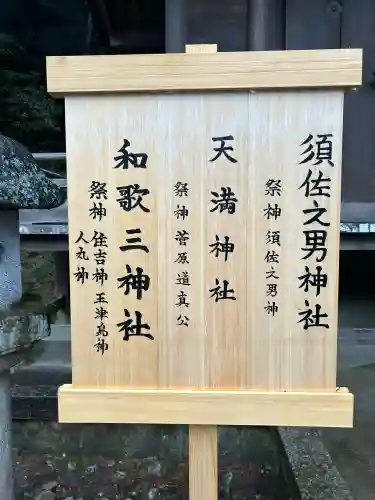 須佐之男神社
祭神 須佐之男神
天満神社
祭神 菅原道真公
和歌三神社
祭神 住吉神 玉津島神
人丸神